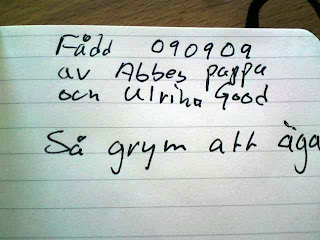 Född 090909
av Abbes pappa
och Ulrika Good
Så grym att äga